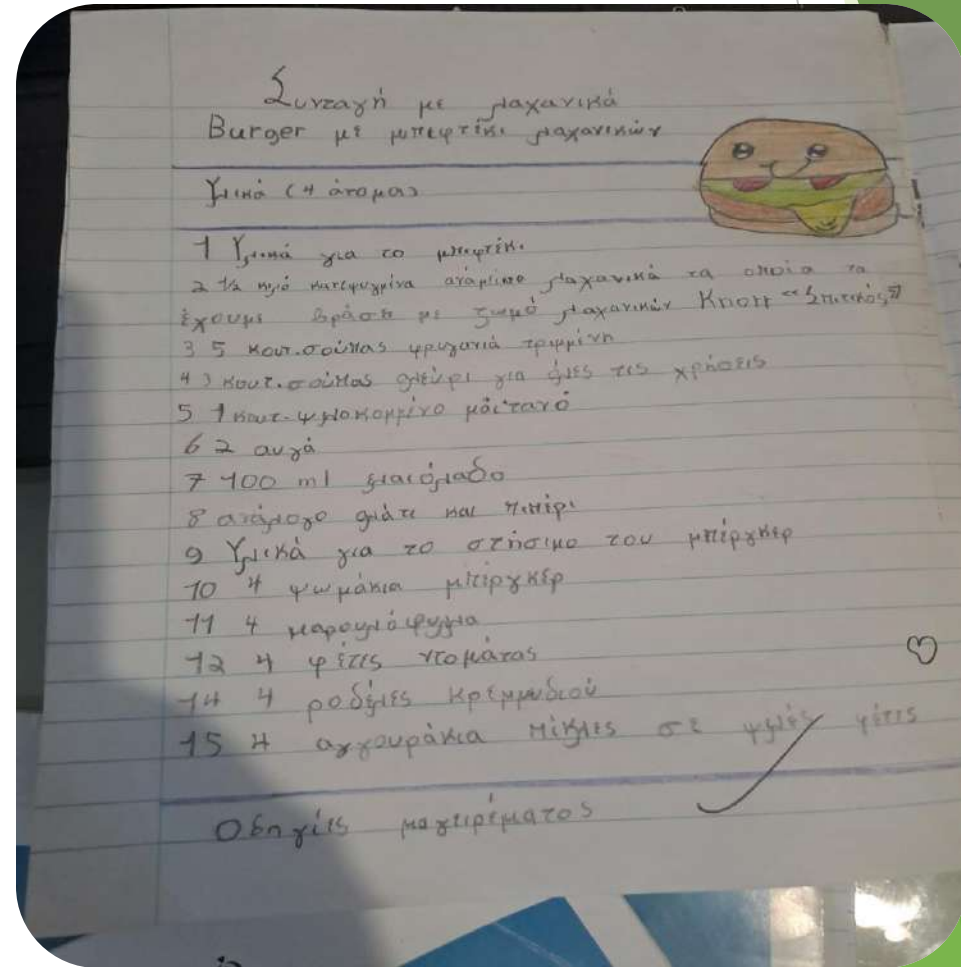 Συνταγή με λαχανικά
Burger με μπιφτέκι λαχανικών
Υλικά (4 άτομα)
1 Υλικά για το μπιφτέκι
2 ½ κιλό κατεψυγμένα ανάμικτα λαχανικά τα οποία τα
έχουμε βράσει με ζωμό λαχανικών Knorr “Σπιτικός”
3 5 κουτ.σούπας φρυγανιά τριμμένη
4 3 κουτ.σούπας αλεύρι για όλες τις χρήσεις
5 1 κουτ. ψιλοκομμένο μαϊντανό
6 2 αυγά
7 100 ml ελαιόλαδο
8 ανάλογο αλάτι και πιπέρι
9 Υλικά για το στήσιμο του μπέργκερ
10 4 ψωμάκια μπέργκερ
11 4 μαρουλόφυλλα
12 4 φέτες ντομάτας
14 4 ροδέλες κρεμμυδιού
15 4 αγγουράκια πίκλες σε ψιλές φέτες
Οδηγίες μαγειρέματος